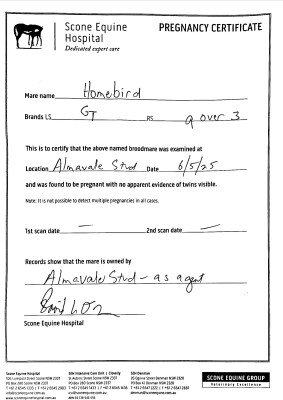 Scone Equine
Hospital
Dedicated expert care
PREGNANCY CERTIFICATE
Mare name Homebird
Brands LS GT RS 9 over 3
This is to certify that the above named broodmare was examined at
Location Almavale Stud Date 6/5/25
and was found to be pregnant with no apparent evidence of twins visible.
Note: It is not possible to detect multiple pregnancies in all cases.
1st scan date — 2nd scan date —
Records show that the mare is owned by
Almavale Stud - as agent
Scone Equine Hospital
Scone Equine Hospital
SEH Intensive Care Unit | Clovelly
SEH Denman
SCONE EQUINE GROUP
Veterinary Excellence